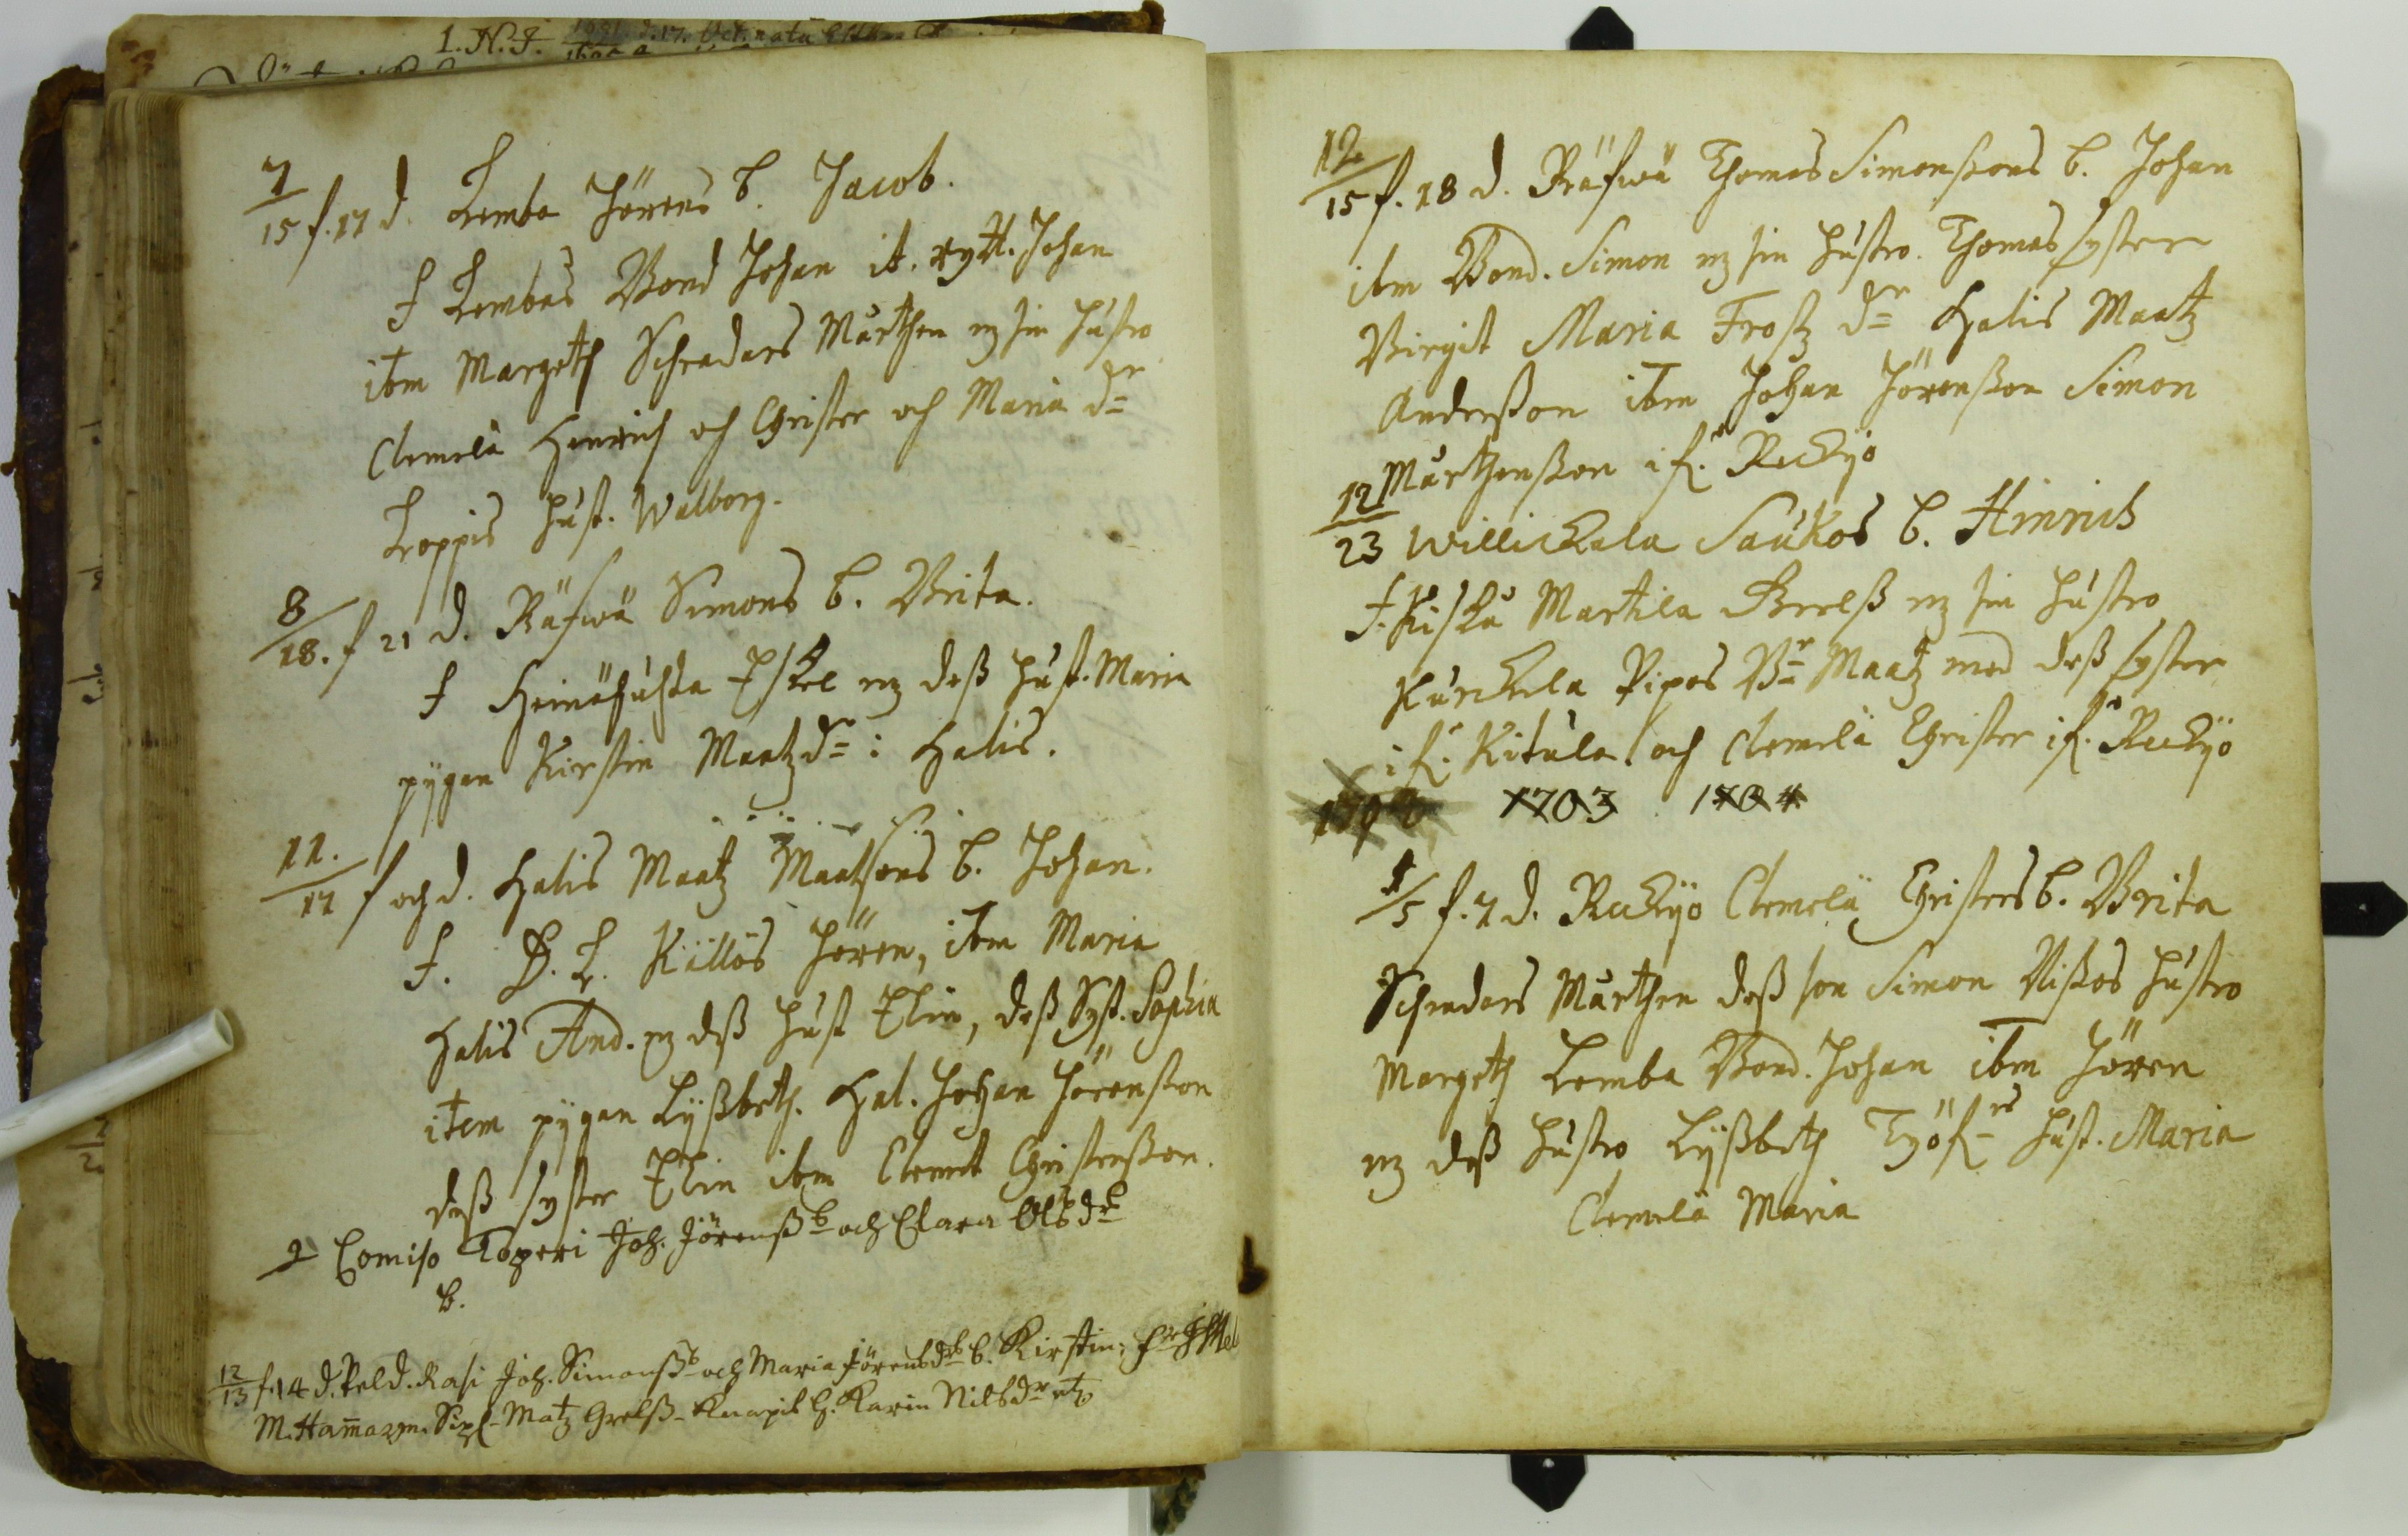 1. N. I. 17. Oct. nata
7
15 f. 17 d. Lemba Jörens b. Jacob.
f Lembas Bond Johan it. rytt. Johan
ibm Margeth Schradars Mårthen mz sin hustro
Clemelä Henrich och Christer och Maria dr
Loppis hust. Walborg.
8
18. f 21 d. Räfwä Simons b. Brita.
f Heinähuhta Eskel mz deß hust. Maria
pygan Kirstin Maatzdr i Halis.
11.
17 f och d. Halis Maatz Maatsons b. Johan.
f. B. L. Källös Jören, ibm Maria
Halis And. mz deß hust Elin, deß Syst. Sophia
item pygan Lyßbeth. Hal. Johan Jörensson
deß syster Elin ibm Clemet Christersson.
2 Comiso Toperi Joh. Jörenß och Clara Olsdr
b.
12
13 f. 14 d. Peld. Rasi Joh. Simonß och Maria Jörensdrs b. Kirstin;
M. Hamarm. Matz Grelß Knapil H. Karin Nilsdr etc
12
15 f. 18 d. Räfwä Thomas Simonssons b. Johan
ibm Bond. Simon mz sin hustro. Thomas syster
Birgit Maria Frostz dr Halis Maatz
Andersson ibm Johan Jörensson Simon
Mårthensson ifr. Reckyö
12
23 Willickala Saukos b. Hinrich
f. Kiskå Martila Grelß mz sin hustro
Kurckela Pipos Br Maatz med deß syster
ifr. Kitula och Clemelä Christer ifr. Reckyö
1703 1704
1
5 f. 7 d. Reckyö Clemelä Christers b. Brita
Schradars Mårthen deß son Simon Nißos hustro
Margeth Lemba Bond. Johan ibm Jören
mz deß hustro Lyßbeth hust. Maria
Clemelä Maria